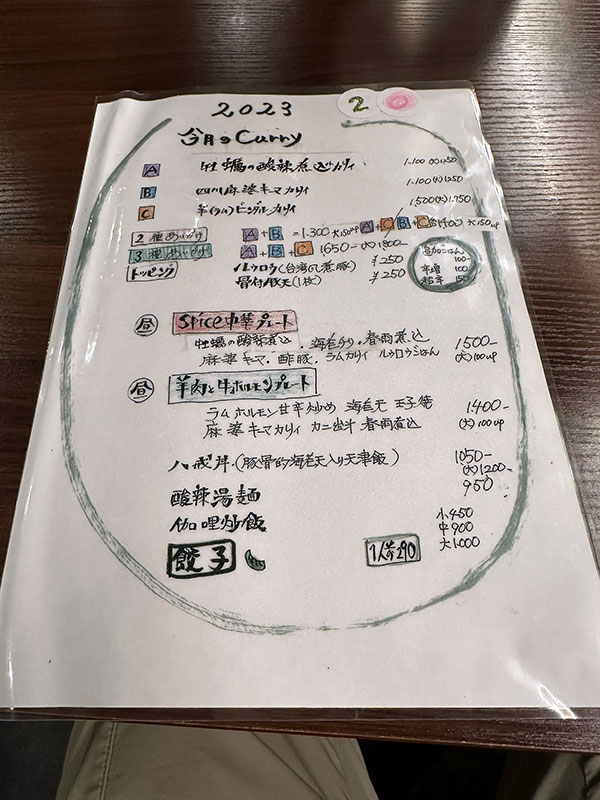 2023
2
今月のCurry
A 牡蠣の酸辣煮込みカリィ 1.100(大)1250
B 四川麻婆キーマカリィ 1.100(大)1250
C 羊(ラム)ビンダルーカリィ 1.500(大)1.750
2種あいがけ A+B=1.300大150up A+C B+C 1400大150up
3種あいがけ A+B+C 1650-(大)1800-
トッピング ルゥロウ(台湾式煮豚) ¥250
骨付豚天(1枚) ¥250
100-
100
150
昼 Spice中華プレート
牡蠣の酸辣煮込・海老チリ・春雨煮込 1500-
麻婆キーマ・酢豚・ラムカリィ ルゥロウごはん (大)100up
昼 羊肉と牛ホルモンプレート
ラムホルモン甘辛炒め 海老天 玉子焼 1.400-
麻婆キーマカリィ カニ 春雨煮込 (大)100up
八戒丼・(豚骨的海老天入り天津飯) 1050-
(大)1200-
酸辣湯麺 950
伽哩炒飯 小450
中900
大1.000
餃子 1人前290